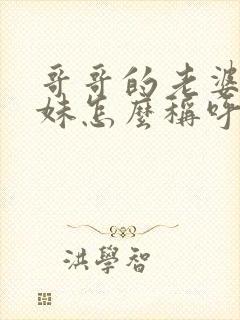 哥哥的老婆
妹怎麼稱呼
洪學智